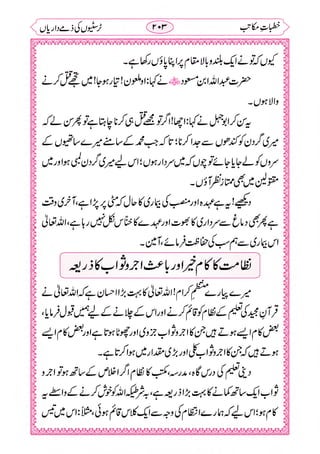 خطباتِ مکاتب
۲۰۳
ٹرسٹیوں کی ذمے داریاں
کیوں کہ تو نے ایک بلند وبالا مقام پر اپنا پاؤں رکھا ہے۔
حضرت عبداللہ ابن مسعود نے کہا: او ملعون! تیار ہوجا! میں تجھے قتل کرنے
والا ہوں۔
یہ سن کر ابوجہل نے کہا: اچھا! اگر تو مجھے قتل ہی کرنا چاہتا ہے تو پھر سن لے کہ
میری گردن کو کندھوں کے پاس سے جدا کرنا؛ تا کہ جب محمد کے سامنے میرے ساتھیوں کے
سروں کو لے جایا جائے تو چوں کہ میں سردار ہوں؛ اس لیے میری گردن لمبی ہو اور میں
مقتولین میں بھی ممتاز نظر آؤں۔
دیکھیے! یہ ہے عہدہ اور منصبی بیماری کا حال کہ مٹی پر پڑا ہے، آخری وقت
ہے پھر بھی دماغ سے سرداری کا بھوت اور عہدے کا خناس نکل نہیں رہا ہے، اللہ تعالیٰ
اس بیماری سے ہم سب کی حفاظت فرمائے، آمین۔
نظامت کا کام خیر اور باعثِ اجر و ثواب کا ذریعہ
میرے پیارے منتظمینِ کرام! اللہ تعالیٰ کا بہت بڑا احسان ہے کہ اللہ تعالیٰ نے
قرآنِ مجید کی تعلیم کے نظام کو قائم کرنے اور اس کے چلانے کے لیے ہمیں قبول فرمایا،
بعض کام ایسے ہوتے ہیں جن کا اجر و ثواب جزوی اور تھوڑا ہوتا ہے اور بعض کام ایسے
ہوتے ہیں کہ جن کا اجر و ثواب کلی اور بڑی مقدار میں ہوا کرتا ہے۔
دینی تعلیم کی درس گاہ، مدرسہ، مکتب کا نظام اگر اخلاص کے ساتھ ہو تو اجر و
ثواب ایک ساتھ کمانے کا بہت بڑا ذریعہ ہے، بہ شرطیکہ اللہ کو خوش کرنے کے واسطے یہ
کام ہو؛ اس لیے کہ ہمارے انتظام کی وجہ سے ایک کلاس قائم ہوئی، مثلاً: اس میں تیس